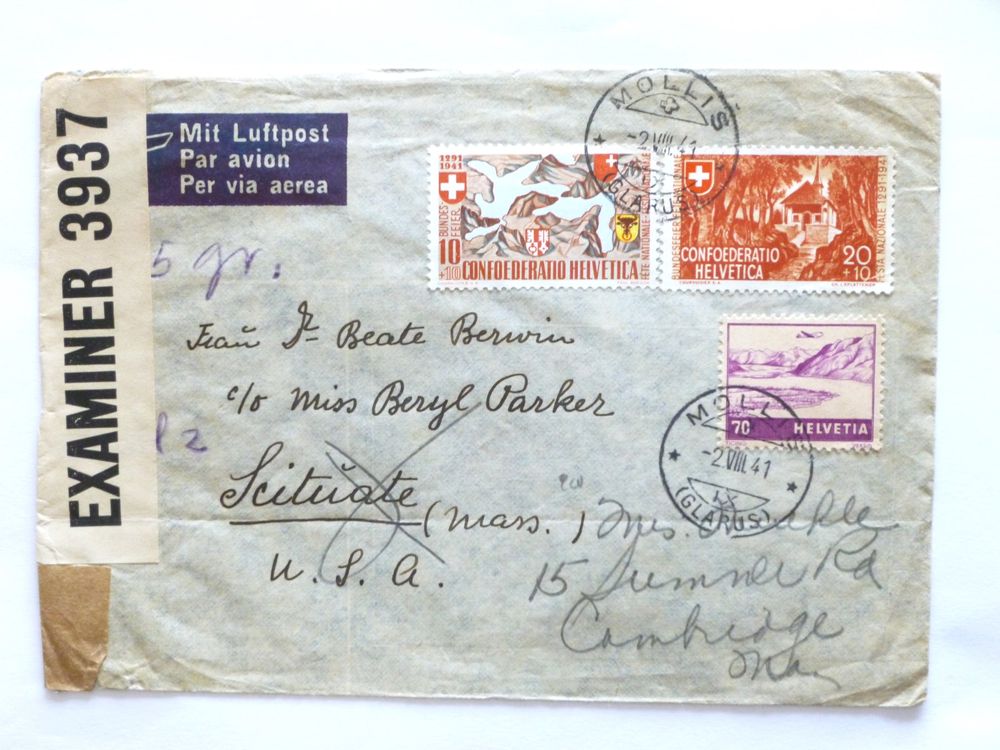 EXAMINER 3937
Mit Luftpost
Par avion
Per via aerea
5 gr.
MOLLIS
-2.VIII.41
(GLARUS)
1291
1941
BUNDES
FEIER
10
+10
CONFOEDERATIO HELVETICA
FÊTE NATIONALE
COURVOISIER S.A.
CONFOEDERATIO
HELVETICA
20
+10
BUNDESFEIER
FESTA NAZIONALE · 1291-1941
COURVOISIER S.A.
Frau Dr Beate Berwin
c/o Miss Beryl Parker
Scituate
(Mass.)
U.S.A.
70 HELVETIA
MOLLIS
-2.VIII.41
(GLARUS)
Mrs.
15 Sumner Rd
Cambridge